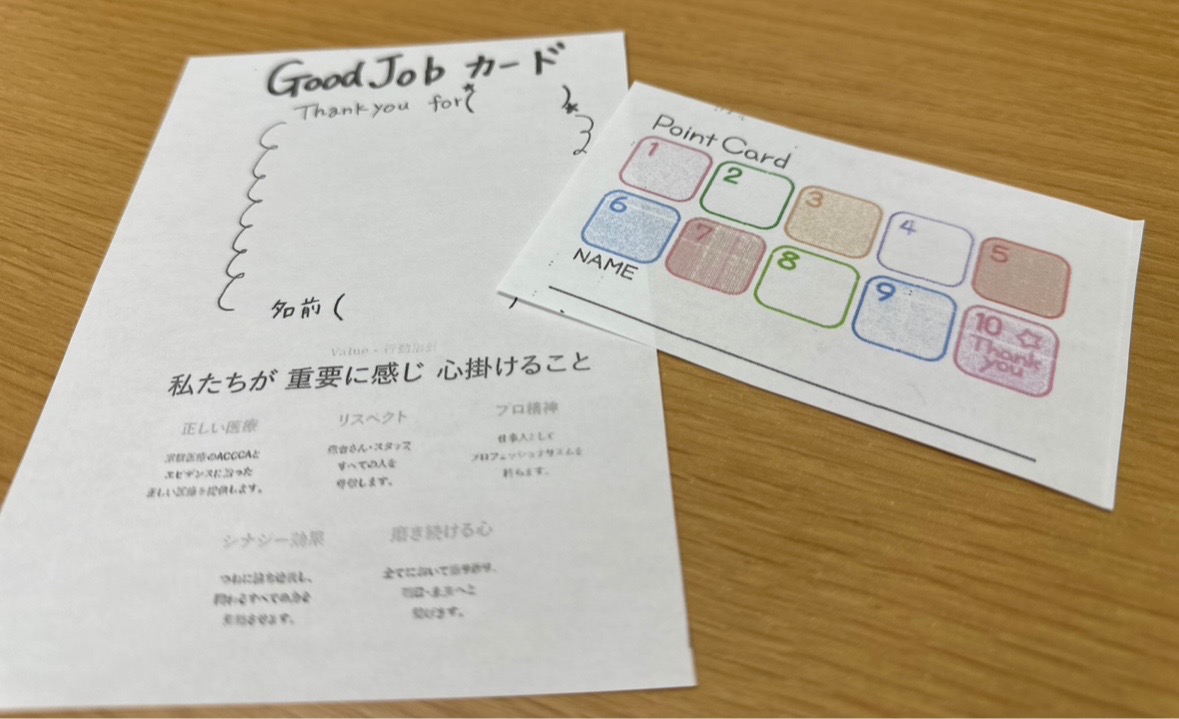 Good Job カード
Thank you for( )
名前 (
Value・行動指針
私たちが 重要に感じ 心掛けること
正しい医療
家庭医療のACCCAと
エビデンスに沿った
正しい医療を提供します。
リスペクト
患者さん・スタッフ
すべての人を
尊敬します。
プロ精神
仕事人として
プロフェッショナリズムを
シナジー効果
つねに
関わるすべての力を
磨き続ける心
全てにおいて
Point Card
1
2
3
4
5
6
7
8
9
10
Thank
you
NAME